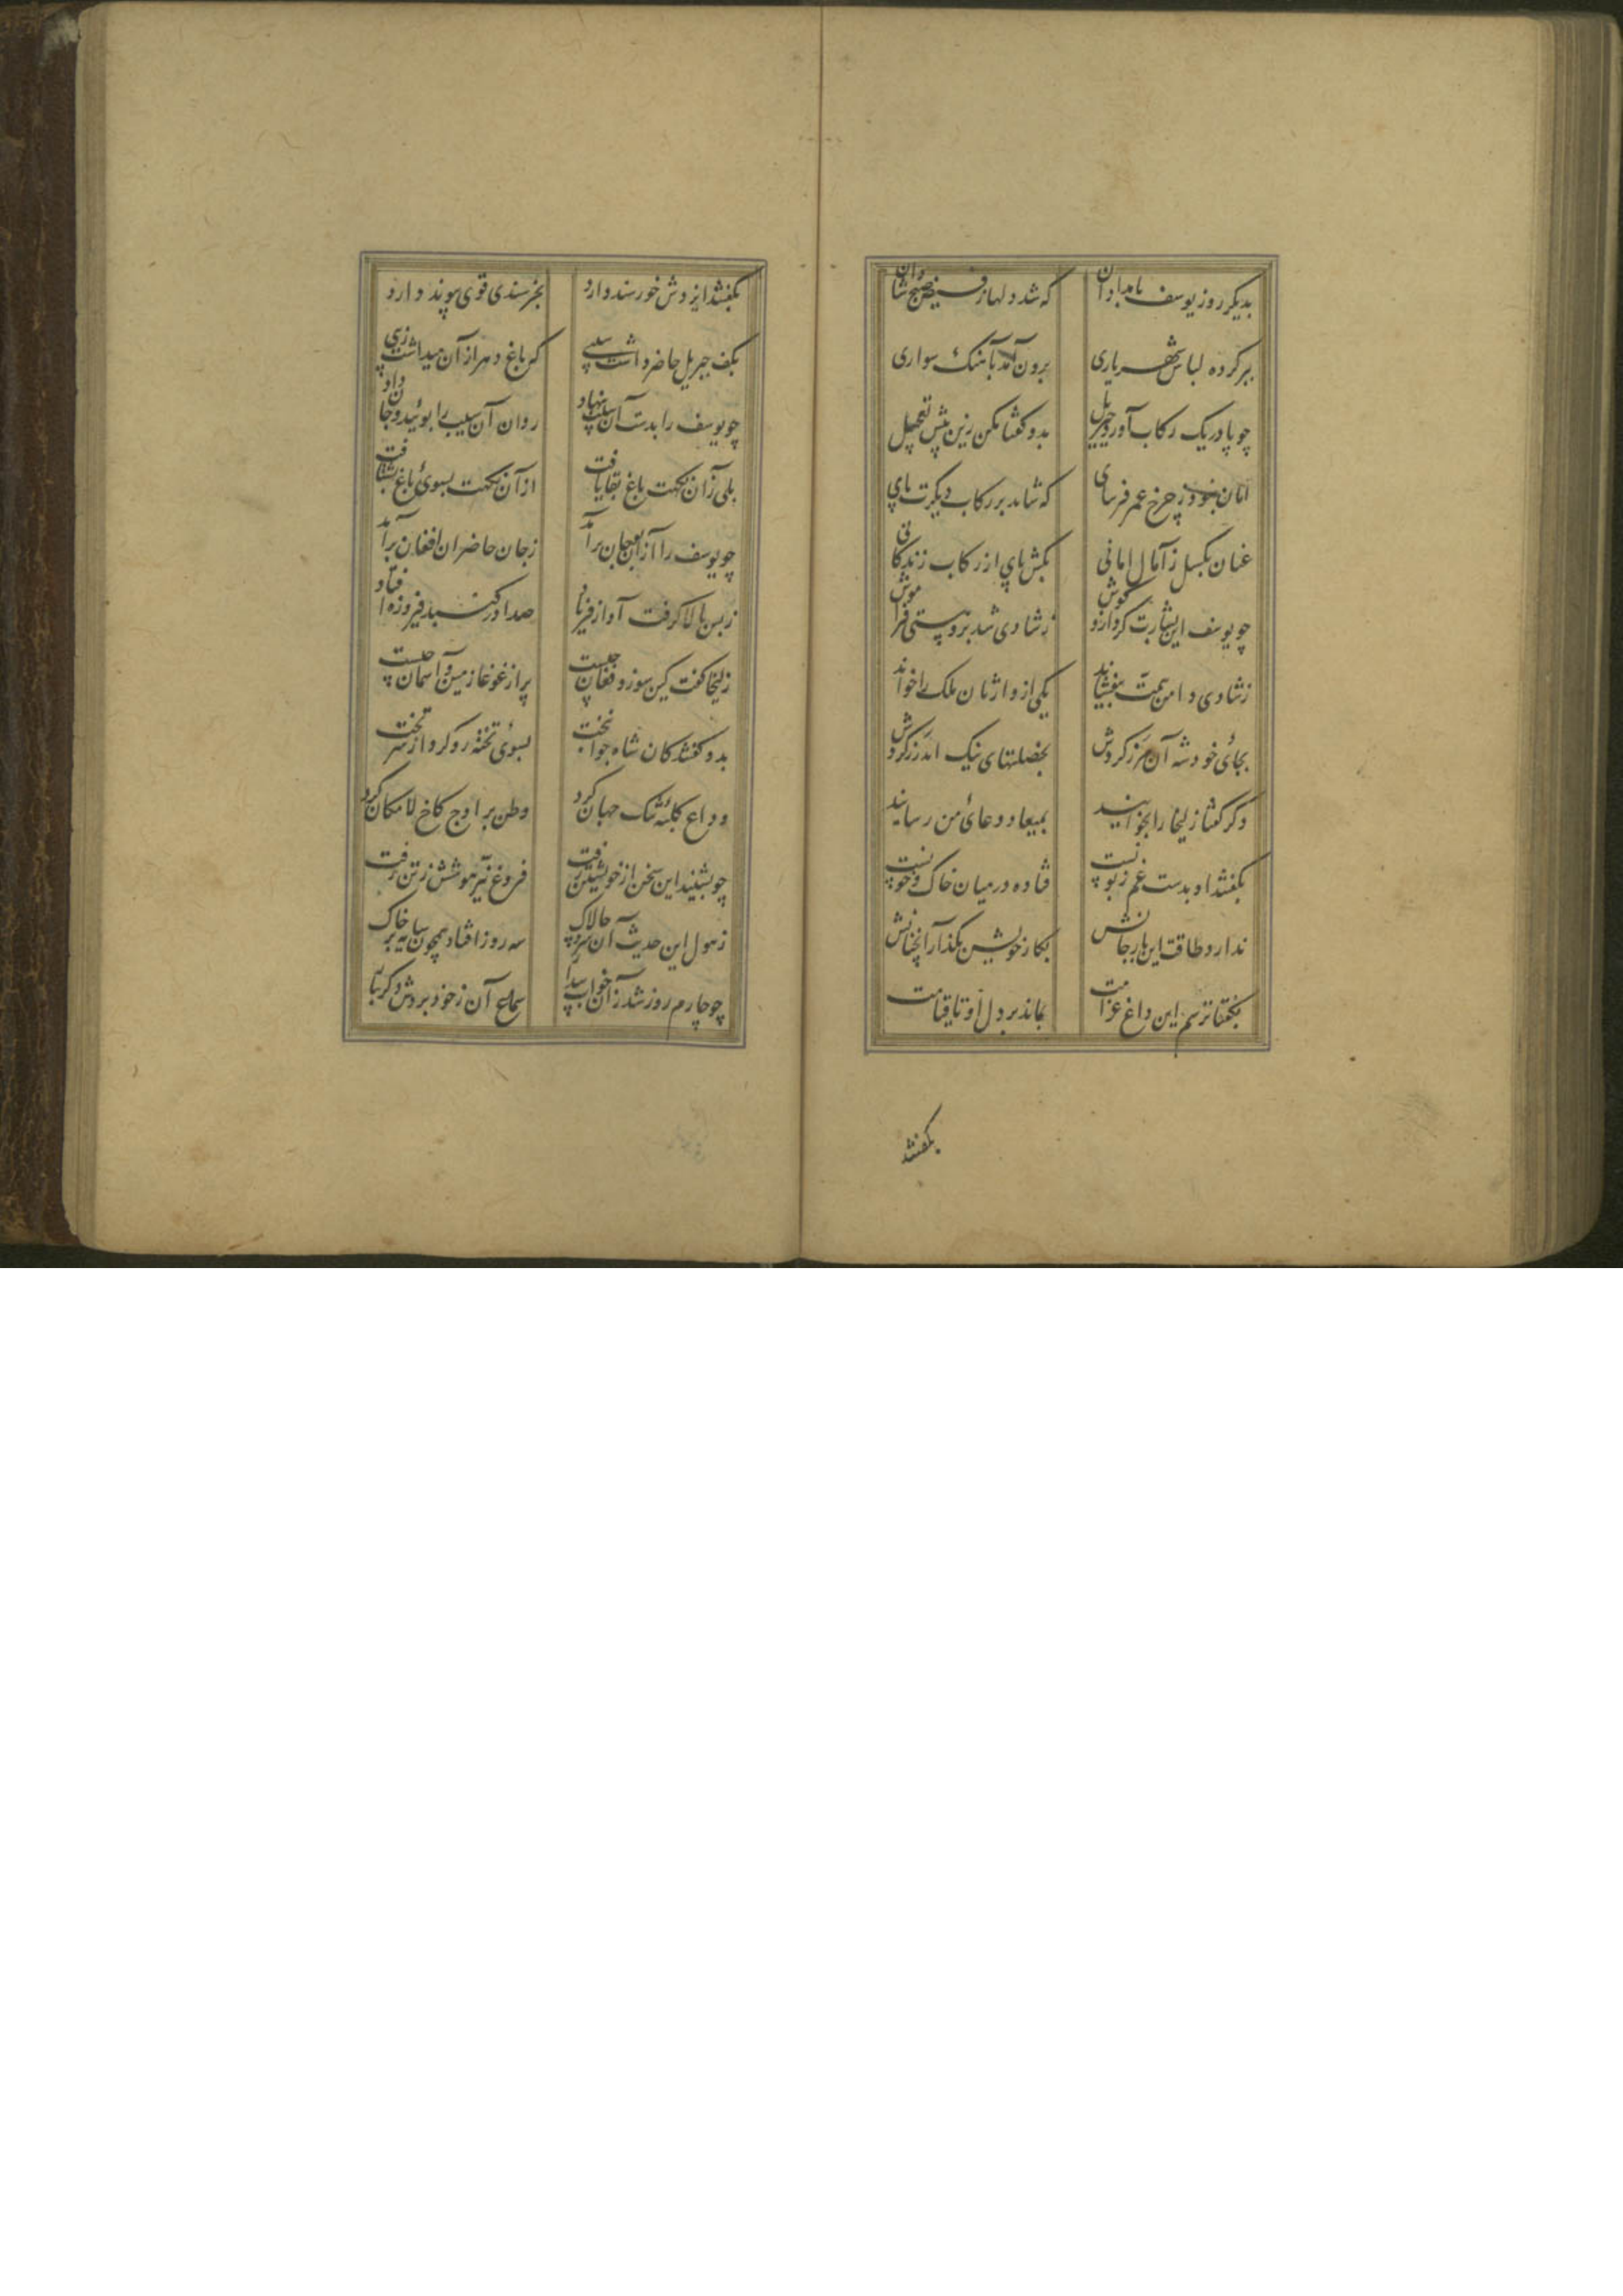 بدیکر روز یوسف بامدادان که شد دلها ز فیض صبح شادان
ببر کرده لباس شهریاری برون آمد بآهنک سواری
چو پا در یک رکاب آورد جبریل بدو کفتا مکن زین پیش تعجیل
امان نبود ز چرخ عمر فرسای که شاید بر رکاب دیکرت پای
عنان بکسل ز آمال امانی بکش پای از رکاب زندکانی
چو یوسف این بشارت کرد ازو کوش ز شادی شد برو هستی فراموش
ز شادی دامن همت بیفشاند یکی از وارثان ملک را خواند
بجائ خود شه آن مرز کردش بخصلتهای نیک اندرز کردش
دکر کفتا زلیخا را بخوانید بمیعاد وداعئ من رسانید
بکفتند او بدست غم زبونست فتاده در میان خاک و خونست
ندارد طاقت این بار جانش بکار خویشتن بکذار آنچنانش
بکفتا ترسم این داغ غرامت بماند بر دل او تا قیامت
بکفتند
بکفتند ایزدش خورسند دارد بخرسندی قوی پیوند دارد
بکف جبریل حاضر داشت سیبی که باغ دهر از آن میداشت زیبی
چو یوسف را بدست آن سیب بنهاد روان آن سیب را بوئید و جان داد
بلی زان نکهت باغ بقا یافت از آن نکهت بسوئ باغ بشتافت
چو یوسف را از آن بو جان برآمد ز جان حاضران افغان برآمد
ز بس بالا کرفت آواز فریاد صدا در کنبد فیروزه افتاد
زلیخا کفت کین سوز و فغان چیست پر از غوغا زمین و آسمان چیست
بدو کفتند کان شاه جوانبخت بسوئ تخته رو کرد از سر تخت
وداع کلبئه تنک جهان کرد وطن بر اوج کاخ لامکان کرد
چو بشنید این سخن از خویشتن رفت فروغ نیر هوشش ز تن رفت
ز هول این حدیث آن سرو چالاک سه روز افتاد همچون سایه بر خاک
چو چارم روز شد زان خواب بیدار سماع آن ز خود بردش دکر بار